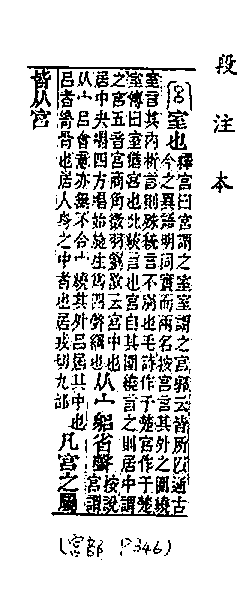 段注本
宮 室也 釋宮曰宮謂之室室謂之宮郭云皆所㠯通古
今之異語明同實而兩名按宮言其外之圍繞
室言其內析言則殊統言不別也毛詩作于楚宮作于楚
室傳曰室猶宮也此統言也宮自其圍繞言之則居中謂
之宮五音宮商角徵羽劉歆云宮中也
居中央唱四方唱始施生爲四聲綱也 从宀躳省聲 按說
宮謂
从宀呂會意亦無不合宀繞其外呂居其中也
呂者脊骨也居人身之中者也居戎切九部 凡宮之屬
皆从宮
(宮部 P346)